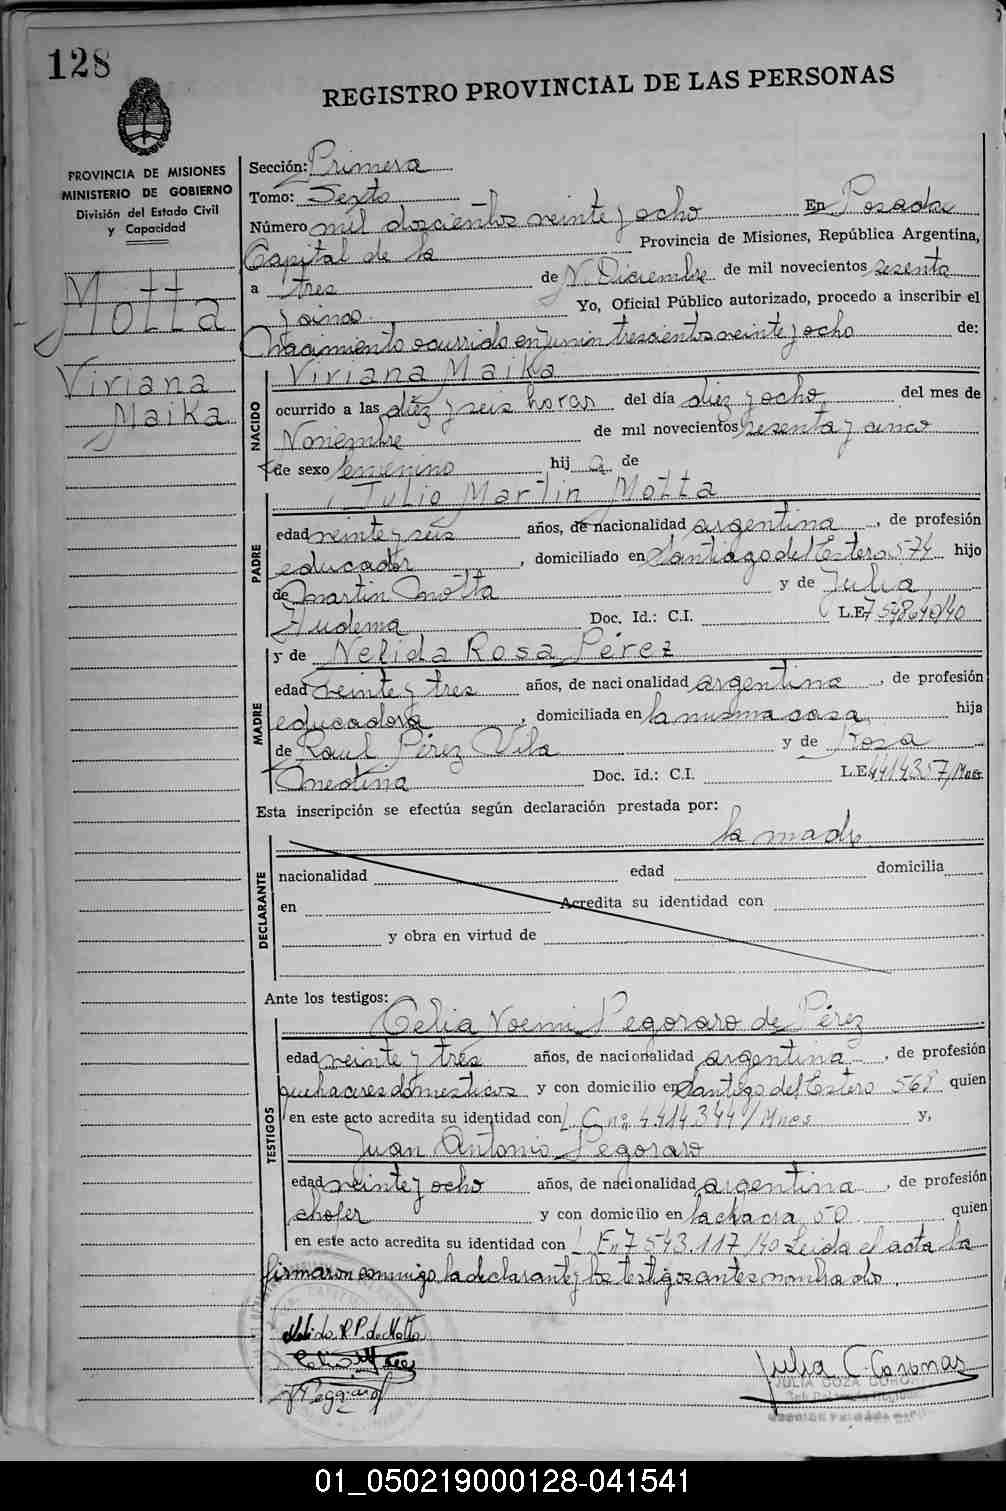 128
REGISTRO PROVINCIAL DE LAS PERSONAS
PROVINCIA DE MISIONES
MINISTERIO DE GOBIERNO
División del Estado Civil
y Capacidad
Motta
Viviana
Maika
Sección: Primera
Tomo: Sexto
Número mil doscientos veinte y ocho En Posadas
Capital de la Provincia de Misiones, República Argentina,
a tres de Diciembre de mil novecientos sesenta
y cinco. Yo, Oficial Público autorizado, procedo a inscribir el
Nacimiento ocurrido en Junin trescientos veinte y ocho de:
NACIDO
Viviana Maika
ocurrido a las diez y seis horas del día diez y ocho del mes de
Noviembre de mil novecientos sesenta y cinco
de sexo femenino hij a de
PADRE
Julio Martin Motta
edad veinte y seis años, de nacionalidad argentina, de profesión
educador, domiciliado en Santiago del Estero 574 hijo
de Martin Motta y de Julia
Ludema Doc. Id.: C.I. L.E. 7548640/40
MADRE
y de Nelida Rosa Pérez
edad veinte y tres años, de nacionalidad argentina, de profesión
educadora, domiciliada en la misma casa hija
de Raul Pérez Vila y de Rosa
Medina Doc. Id.: C.I. L.E. 4414357/Mnes
Esta inscripción se efectúa según declaración prestada por:
la madre
DECLARANTE
nacionalidad edad domicilia
en Acredita su identidad con
y obra en virtud de
Ante los testigos: Celia Noemi Pegoraro de Pérez
TESTIGOS
edad veinte y tres años, de nacionalidad argentina, de profesión
quehaceres domesticos y con domicilio en Santiago del Estero 568 quien
en este acto acredita su identidad con L C nº 4.414.344/Mnes y,
Juan Antonio Pegoraro
edad veinte y ocho años, de nacionalidad argentina, de profesión
chofer y con domicilio en la chacra 50 quien
en este acto acredita su identidad con L. E nº 7 543.117/40 Leida el acta la
firmaron conmigo, la declarante y los testigos antes nombrado.
Nelida R P. de Motta
Pegoraro
Julia C. Coronas
01_050219000128-041541